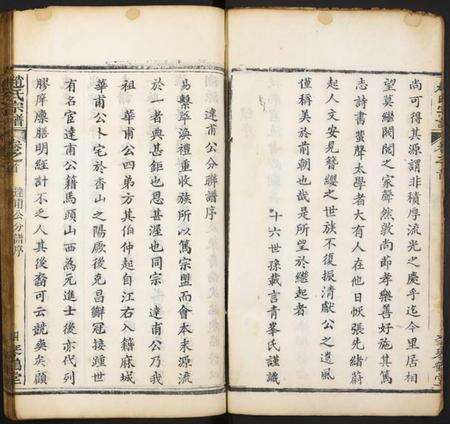 尚可得其源謂非積厚流光之慶乎迄今里居相
望莫繼閥閱之家孱然敦尚節孝樂善好施其篤
志詩書蜚聲太學者大有人在他日恢張先緒蔚
起人文安見簪纓之世族不復振清獻公之遺風
僅稱美於前朝也哉是所望於繼起者
十六世孫載言青峯氏謹識
達甫公分聯譜序
易繫萃渙禮重收族所以篤宗盟而會本末源流
於一者典甚鉅也思甚渥也同宗 達甫公乃我
祖 華甫公四弟方其伯仲起自江右入籍麻城
華甫公卜宅於香山之陽厥後克昌黼冠接踵世
有名宦達甫公籍馬頭山西為元進士後亦代列
膠庠廩膳明經計不乏人其後裔可云詵奕矣顧
趙氏宗譜
卷之首
達甫公分譜序